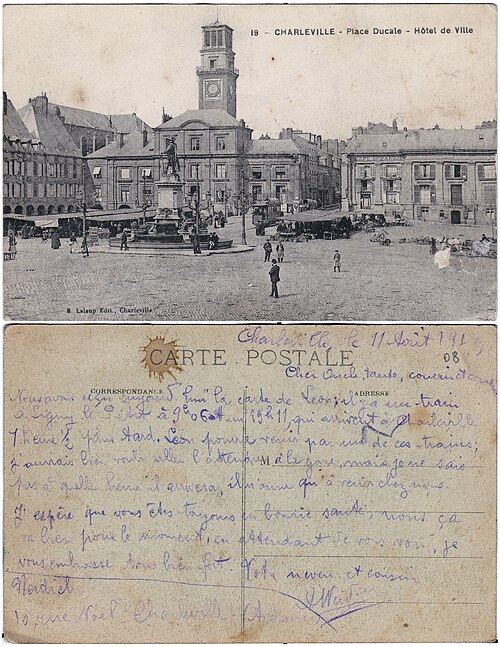 19 - CHARLEVILLE - Place Ducale - Hôtel de Ville
E. Laloup Edit., Charleville
Charleville, le 11 Août
08
CARTE POSTALE
Cher Oncle, tante,
CORRESPONDANCE
ADRESSE
Nous avons aujourd'hui la carte de Leon; il y a un train
à Ligny le à 9h06 et un 19h11, qui arrivent à Charleville
7 heures ½ plus tard. Leon pourra venir par un de ces trains;
j'aurais bien voulu aller l'attendre à la gare, mais je ne sais
pas à quelle heure il arrivera, il n'aura qu'à venir chez nous.
J'espère que vous êtes toujours en bonne santé, nous ça
va bien pour le moment, en attendant de vous voir, je
vous embrasse tous bien fort. Votre neveu et cousin
10, rue Noël Charleville (Ardennes)